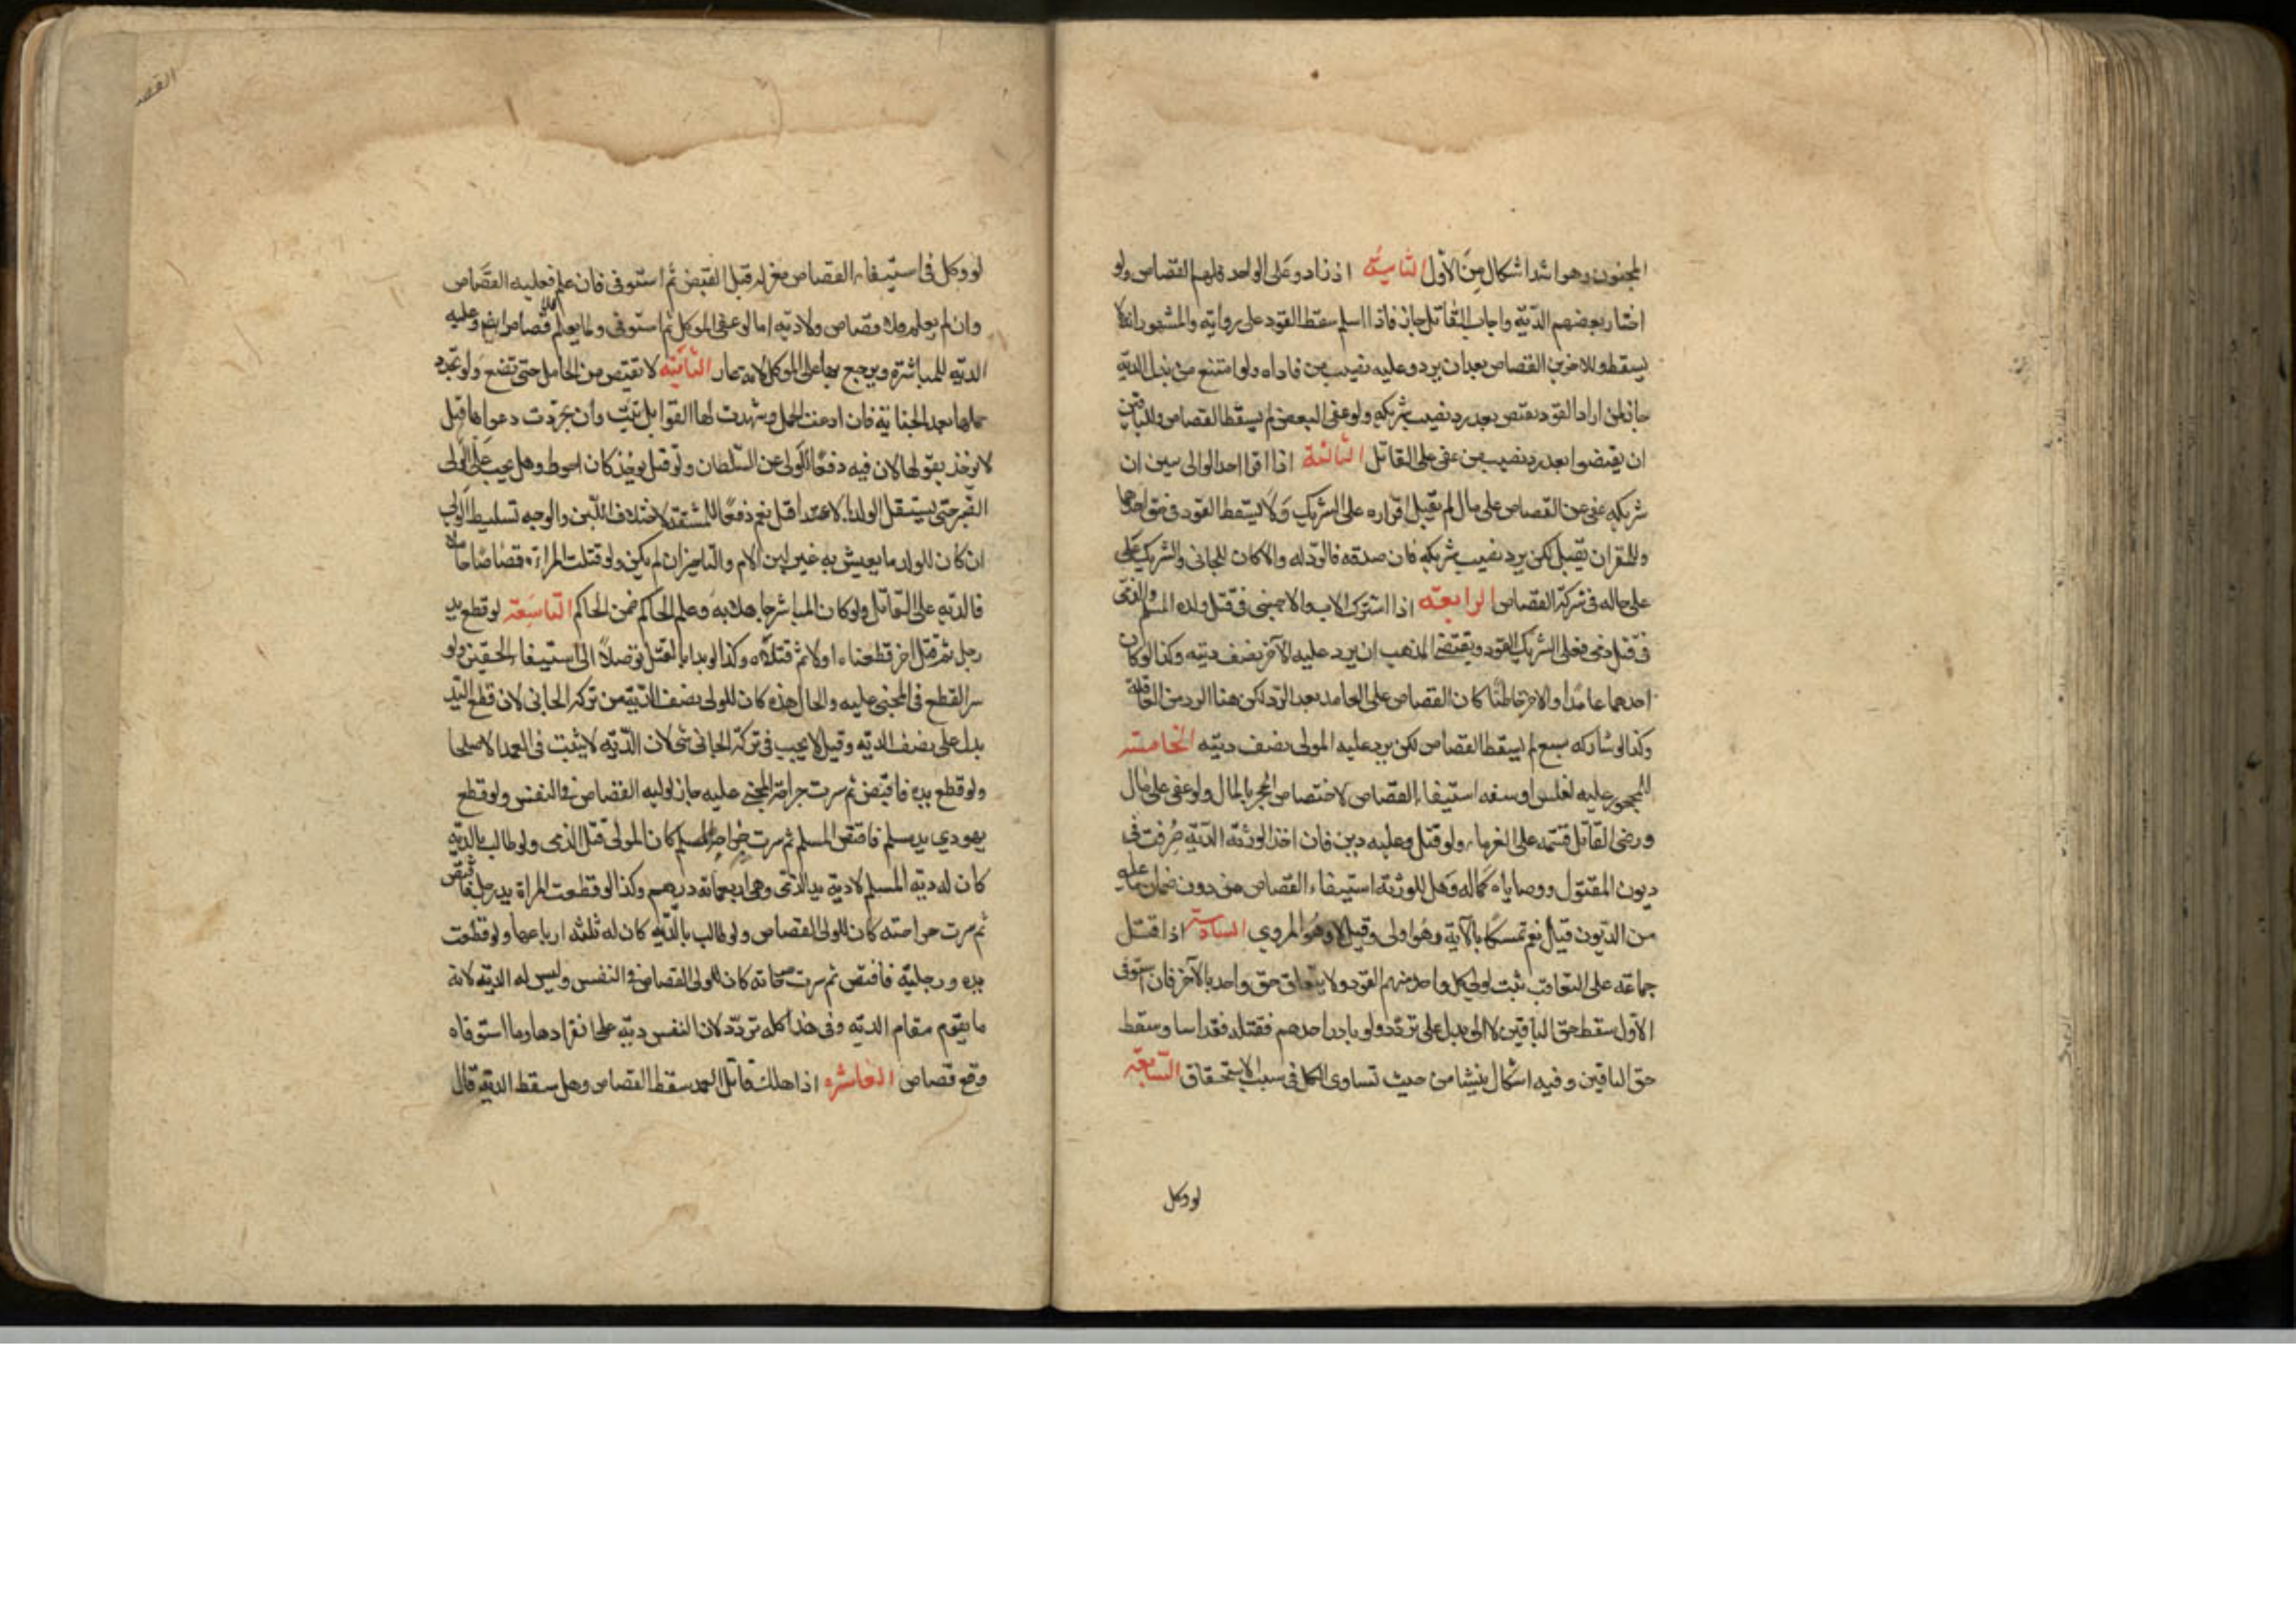 المجنون وهو اشد اشكال من الأول الثانية اذ زادوا على الواحد فلهم القصاص ولو
اختار بعضهم الدية واجاب القاتل جاز فاذا اسلم سقط القود على رواية والمشهور انه لا
يسقط وللاخرين القصاص بعد ان يردوا عليه نصيب من فاداه ولو امتنع من بذل الدية
جاز لمن اراد القود يقتص بعد رد نصيب شريكه ولو عفى البعض لم يسقط القصاص وللباقين
ان يقتصوا بعد رد نصيب من عفى على القاتل الثالثة اذا اقر احد الوالى سين ان
شريكه عفى عن القصاص على مال لم يقبل اقراره على الشريك ولا يسقط القود فى حق احدهما
وللمقر ان يقبل لكن يرد نصيب شريكه فان صدقه فالرد له والا كان للجانى والشريك على
على حاله فى شركة القصاص الرابعة اذا اشترك الاب والاجنبى فى قتل ولده المسلم والذمى
فى قتل ذمى فعلى الشريك القود ويقتضى المذهب ان يرد عليه الآخر نصف ديته وكذا لو كان
احدهما عامدا والاخر خاطئا كان القصاص على العامد بعد الرد لكن هنا الرد من العاقلة
وكذا لو شاركه سبع لم يسقط القصاص لكن يرد عليه المولى نصف ديته الخامسة
المحجور عليه لفلس او سفه استيفاء القصاص لاختصاص الحجر بالمال ولو عفى على مال
ورضى القاتل قسمه على الغرماء ولو قتل وعليه دين فان اخذ الورثة الدية صرفت فى
ديون المقتول ووصاياه كماله وهل للورثة استيفاء القصاص من دون ضمان ما عليه
من الديون قيل نعم تمسكا بالآية وهو اولى وقيل لا وهو المروي السادسة اذا قتل
جماعة على التعاقب ثبت لولى كل واحد منهم القود ولا يتعلق حق واحد بالآخر فان استوفى
الأول سقط حق الباقين لا الى بدل على تردد ولو بادر احدهم فقتله فقد اسا وسقط
حق الباقين وفيه اشكال ينشا من حيث تساوى الكل فى سبب الاستحقاق السابعة
لو وكل
القصـ
لو وكل فى استيفاء القصاص فعزله قبل القبض ثم استوفى فان علم فعليه القصاص
وان لم يعلم فلا قصاص ولا دية اما لو عفى الموكل ثم استوفى ولما يعلم فلا قصاص ايضا وعليه
الدية للمباشرة ويرجع بها على الموكل لانه غار الثامنة لا تقتص من الحامل حتى تضع ولو تجدد
حملها بعد الجناية فان ادعت الحمل وشهدت لها القوابل ثبت وان تجردت دعواها قيل
لا يوخذ بقولها لان فيه دفعا للولى عن السلطان ولو قيل يوخذ كان احوط وهل يجب على الولى
الصبر حتى يستقل الولد بالاغتذا قيل نعم دفعا لمشقة لاختلاف اللبن والوجه تسليط الولى
ان كان للولد ما يعيش به غير لبن الام والتاخير ان لم يكن ولو قتلت المراة قصاصا حاملا
فالدية على القاتل ولو كان المباشر جاهلا به وعلم الحاكم ضمن الحاكم التاسعة لو قطع يد
رجل ثم قتل اخر قطعناه اولا ثم قتلناه وكذا لو بدا بالقتل توصلا الى استيفاء الحقين ولو
سرا القطع فى المجنى عليه والحال هذه كان للولى نصف الدية من تركة الجانى لان قطع اليد
بدل على نصف الدية وقيل لا يجب فى تركة الجانى شى لان الدية لا يثبت فى العمد الا صلحا
ولو قطع يده فاقتص ثم سرت جراحة المجنى عليه جاز لوليه القصاص فى النفس ولو قطع
يهودي يد مسلم فاقتص المسلم ثم سرت جراحة المسلم كان للمولى قتل الذمى ولو طالب بالدية
كان له دية المسلم لا دية يد الذمى وهى اربعماية درهم وكذا لو قطعت المراة يد رجل فاقتص
ثم سرت جراحته كان للولى القصاص ولو طالب بالدية كان له ثلثة ارباعها ولو قطعت
يده ورجليه فاقتص ثم سرت جراحاته كان للولى القصاص فى النفس وليس له الدية لانه
ما يقوم مقام الدية وفى هذا كله تردد لان النفس دية على انفرادها وما استوفاه
وقع قصاص العاشرة اذا هلك قاتل العمد سقط القصاص وهل سقط الدية قال